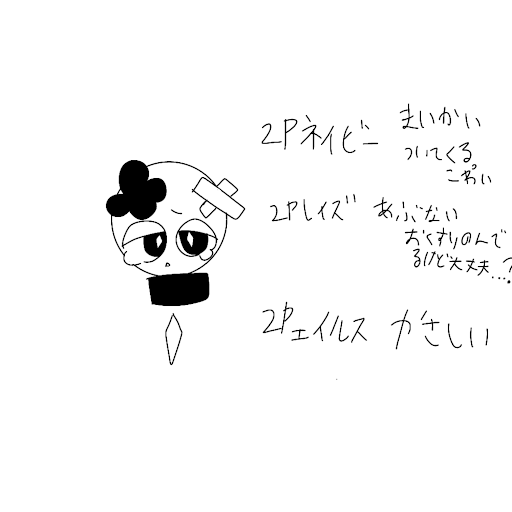 2Pネイビー まいかい
ついてくる
こわい
2Pレイズ あぶない
おくすりのんで
るけど大丈夫...?
2Pエイルス やさしい